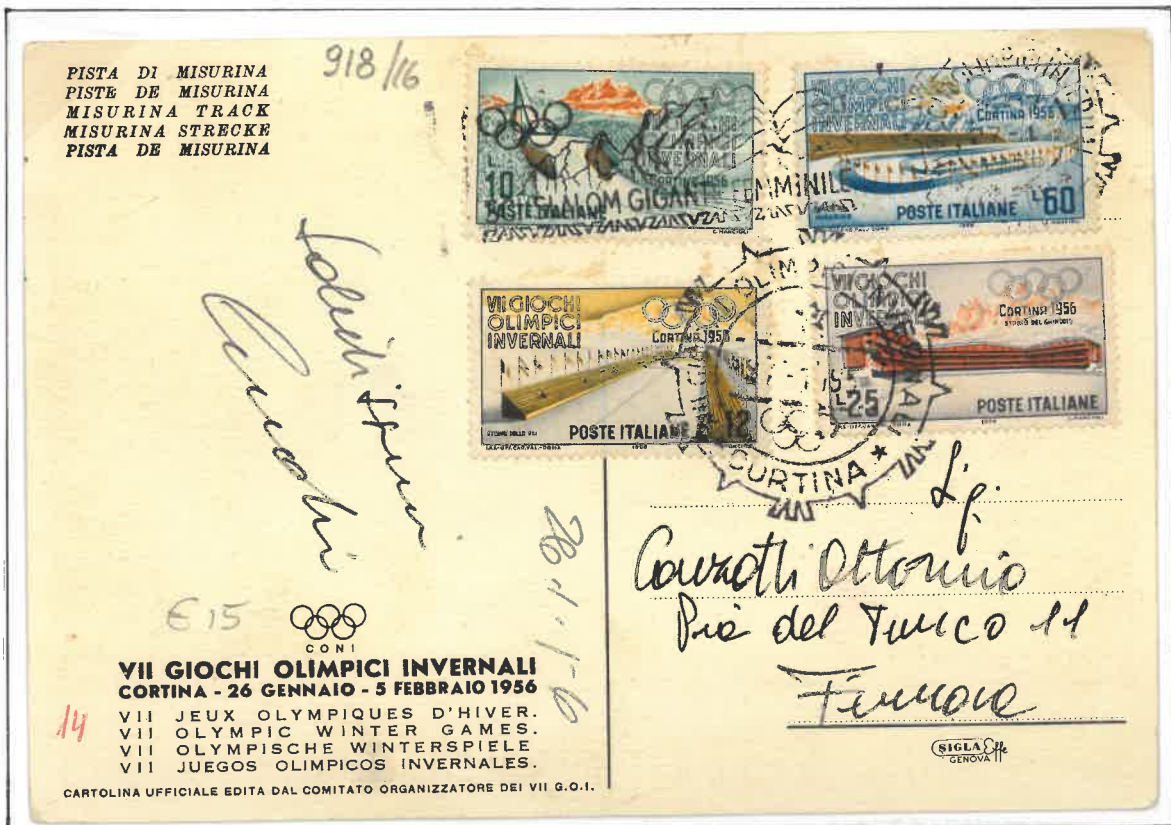 PISTA DI MISURINA
PISTE DE MISURINA
MISURINA TRACK
MISURINA STRECKE
PISTA DE MISURINA
918/16
INVERNALI
10
POSTE ITALIANE
SLALOM GIGANTE FEMMINILE
VII GIOCHI
OLIMPICI
INVERNALI
CORTINA 1956
POSTE ITALIANE L60
VII GIOCHI
OLIMPICI
INVERNALI
CORTINA 1956
POSTE ITALIANE 12
1956
VII GIOCHI
OLIMPICI
INVERNALI
CORTINA 1956
L25
POSTE ITALIANE
1956
CORTINA
Saluti
Sig.
Ottorino
Via del Turco 11
Ferrara
26.1.56
€15
CONI
VII GIOCHI OLIMPICI INVERNALI
CORTINA - 26 GENNAIO - 5 FEBBRAIO 1956
14
VII JEUX OLYMPIQUES D'HIVER.
VII OLYMPIC WINTER GAMES.
VII OLYMPISCHE WINTERSPIELE
VII JUEGOS OLIMPICOS INVERNALES.
CARTOLINA UFFICIALE EDITA DAL COMITATO ORGANIZZATORE DEI VII G.O.I.
SIGLA Effe
GENOVA